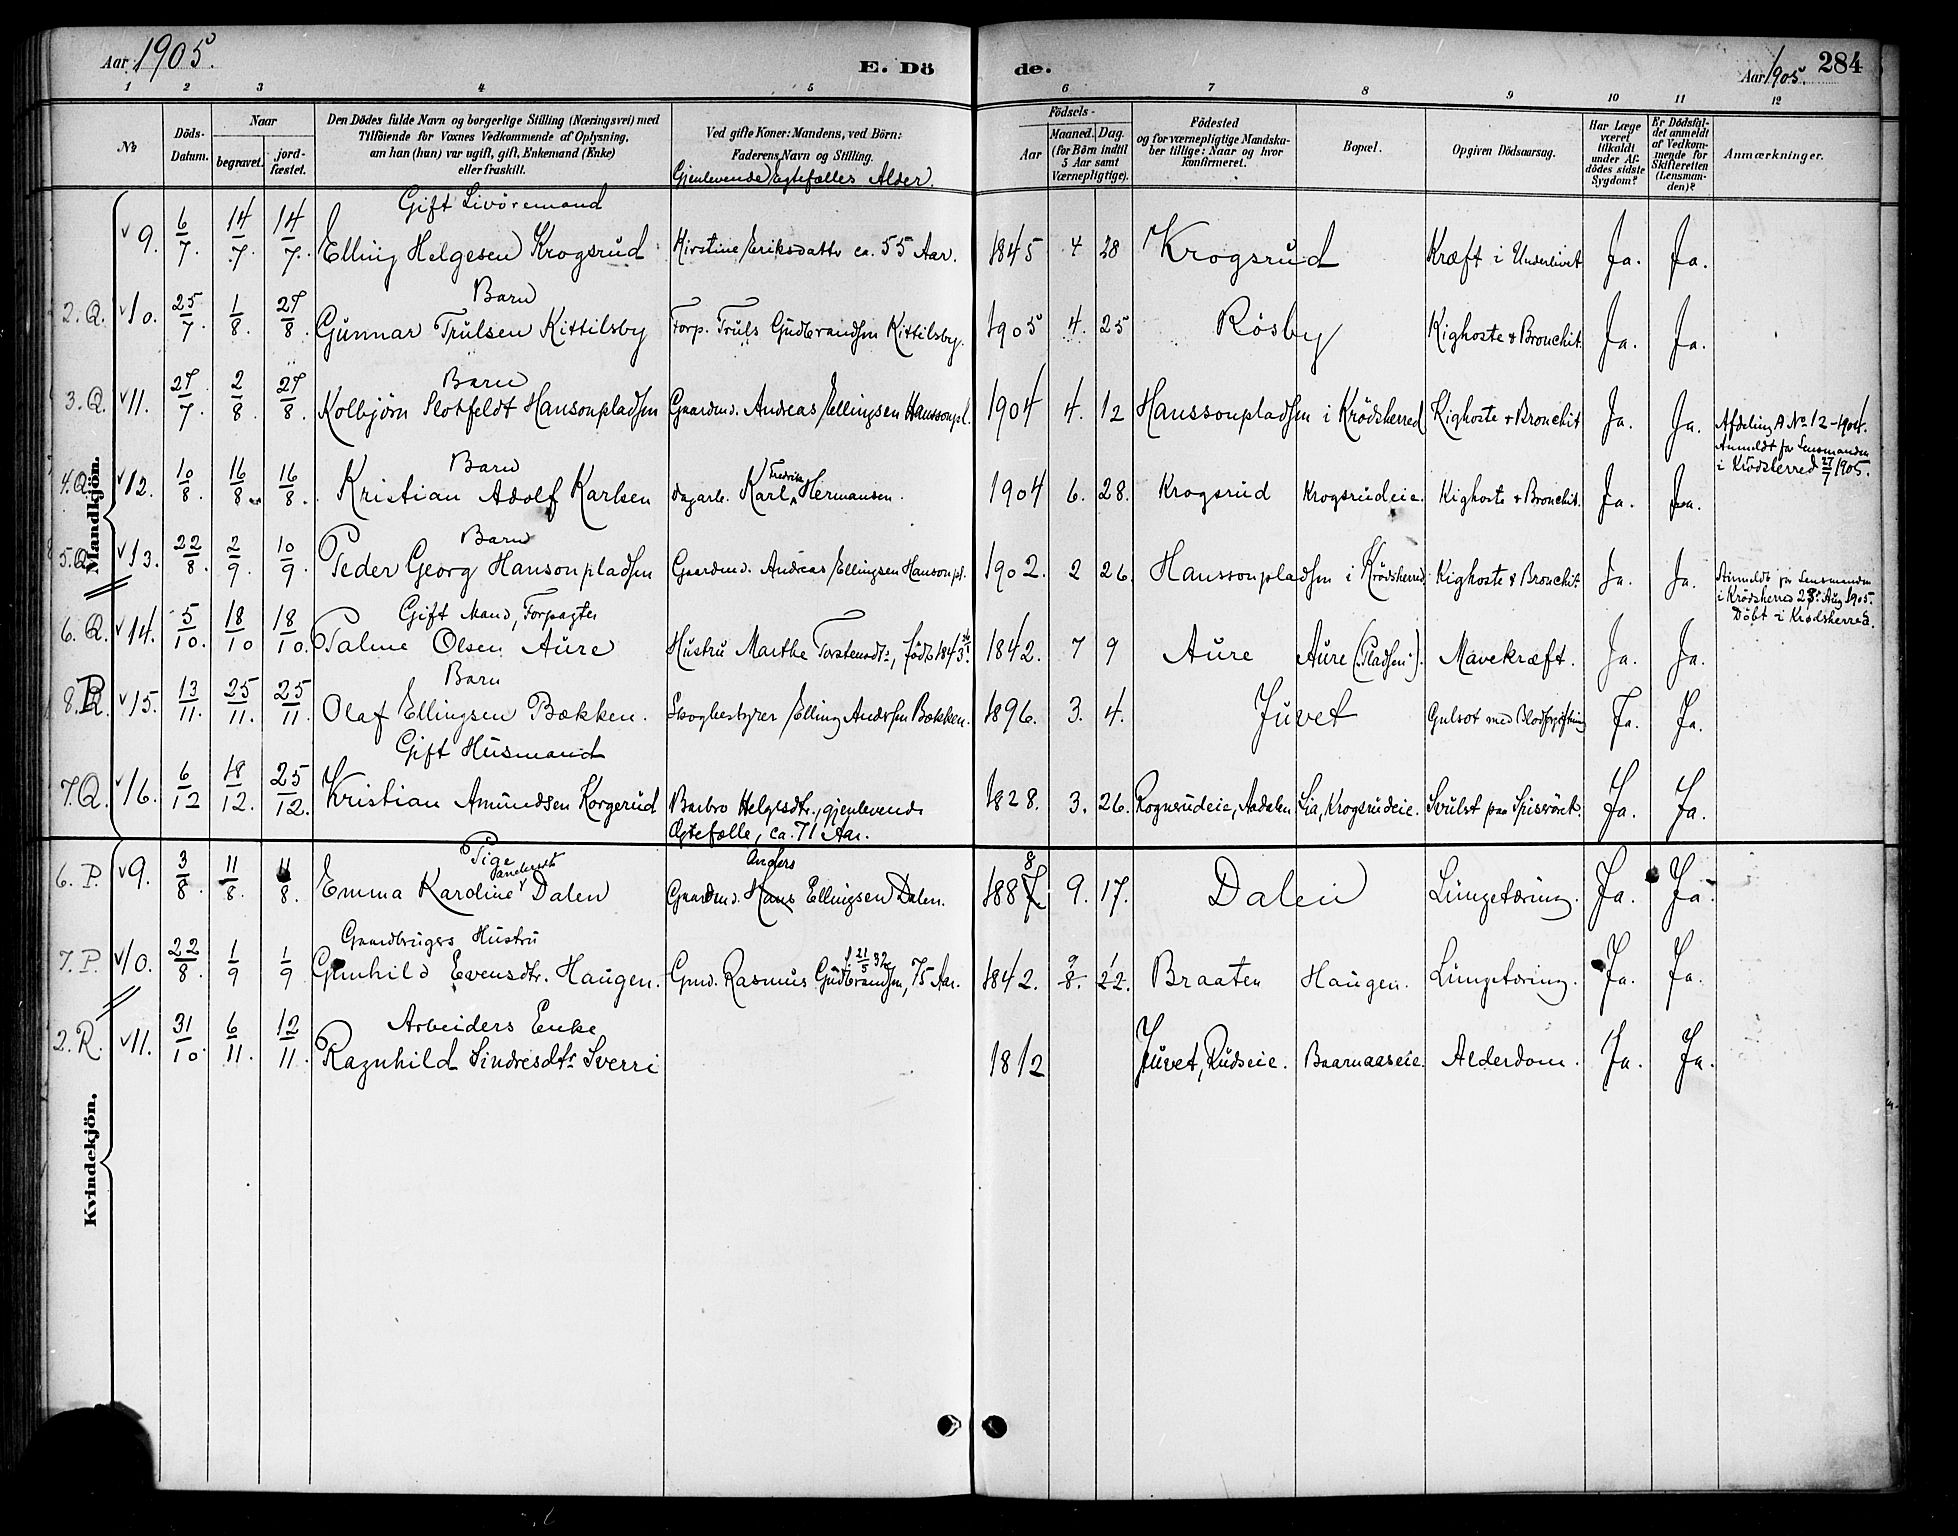 Aar 1905.
E. Dö
de.
Aar 1905. 284
1 2 3 4 5 6 7 8 9 10 11 12
№
Döds-Datum.
Naar
begravet.
jord-fæstet.
Den Dödes fulde Navn og borgerlige Stilling (Næringsvei) med
Tilföiende for Voxnes Vedkommende af Oplysning,
om han (hun) var ugift, gift, Enkemand (Enke)
eller fraskilt.
Ved gifte Koner: Mandens, ved Börn:
Faderens Navn og Stilling.
Gjenlevende Ægtefælles Alder.
Födsels-
Aar
Maaned. Dag.
(for Börn indtil
5 Aar samt
Værnepligtige).
Födested
og for værnepligtige Mandska-
ber tillige: Naar og hvor
konfirmeret.
Bopæl.
Opgiven Dödsaarsag.
Har Læge
været
tilkaldt
under Af-
dödes sidste
Sygdom?
Er Dödsfal-
det anmeldt
af Vedkom-
mende for
Skifteretten
(Lensman-
den)?
Anmærkninger.
Mandkjön.
Gift Livöremand
9. 6/7. 14/7. 14/7. Elling Helgesen Krogsrud Kirstine Eriksdatter ca. 55 Aar. 1845 4 28 Krogsrud Kræft i Underlivet Ja. Ja.
Barn
2. Q. 10. 25/7. 1/8. 27/8. Gunnar Trulsen Kittilsby Forp. Truls Gudbrandsen Kittilsby. 1905 4. 25 Rösby Kighoste & Bronchit. Ja. Ja.
Barn
3. Q. 11. 27/7. 2/8. 27/8. Kolbjörn Slotfeldt Hansonpladsen Gaardmd. Andreas Ellingsen Hanssonpl. 1904 4. 12 Hanssonpladsen i Krödsherred Kighoste & Bronchit Ja. Ja. Afdeling A No 12 - 1904.
Anmeldt for Lensmanden
i Krödsherred 27/7 1905.
Barn
4. Q. 12. 10/8. 16/8. 16/8. Kristian Adolf Karlsen dagarb. Karl Fredrik Hermansen. 1904 6. 28. Krogsrud Krogsrudeie. Kighoste & Bronchit. Ja. Ja.
Barn
5. Q. 13. 22/8. 2/9. 10/9. Peder Georg Hansonpladsen Gaardmd. Andreas Ellingsen Hansonpl. 1902. 2 26. Hanssonpladsen i Krödsherred. Kighoste & Bronchit. Ja. Ja. Anmeldt for Lensmanden
i Krödsherred 28. Aug 1905.
Döbt i Krödsherred.
Gift Mand, Forpagter
6. Q. 14. 5/10. 18/10 18/10. Palme Olsen Aure Hustru Marthe Torstensdtr, født 1843 1842. 7 9 Aure Aure (Pladsen). Mavekræft. Ja. Ja.
Barn
8. R. 15. 13/11. 25/11. 25/11. Olaf Ellingsen Bækken. Skogbestyrer Elling Andersen Bækken. 1896. 3. 4. Juvet Gulsot med Blodforgiftning Ja. Ja.
Gift Husmand
7. Q. 16. 6/12 18/12. 25/12. Kristian Amundsen Korgerud Barbro Helgesdtr., gjenlevende
Ægtefælle, ca. 71 Aar. 1828. 3. 26. Rognsrudeie, Aadalen Lia, Krogsrudeie. Svulst paa Spiserör. Ja. Ja.
Kvindekjön.
Pige
6. P. 9. 3/8. 11/8. 11/8. Emma Kardine Dalen Gaardmd. Hans Anders Ellingsen Dalen. 1888 9. 17. Dalen Lungetæring. Ja. Ja.
Gaardbrugers Hustru
7. P. 10. 22/8. 1/9 1/9 Gunhild Evensdtr. Haugen. Gmd. Rasmus Gudbrandsen, 75 Aar. f. 21/5 30 1842. 8. 9 22. Braaten Haugen. Lungetæring. Ja. Ja.
Arbeiders Enke
2. R. 11. 31/10. 6/11. 12/11. Ragnhild Sindresdtr. Sverri 1812 Juvet, Rudseie. Baarnaaseie. Alderdom. Ja. Ja.